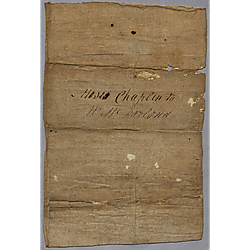 Moses Chaplin to
W. McFarland